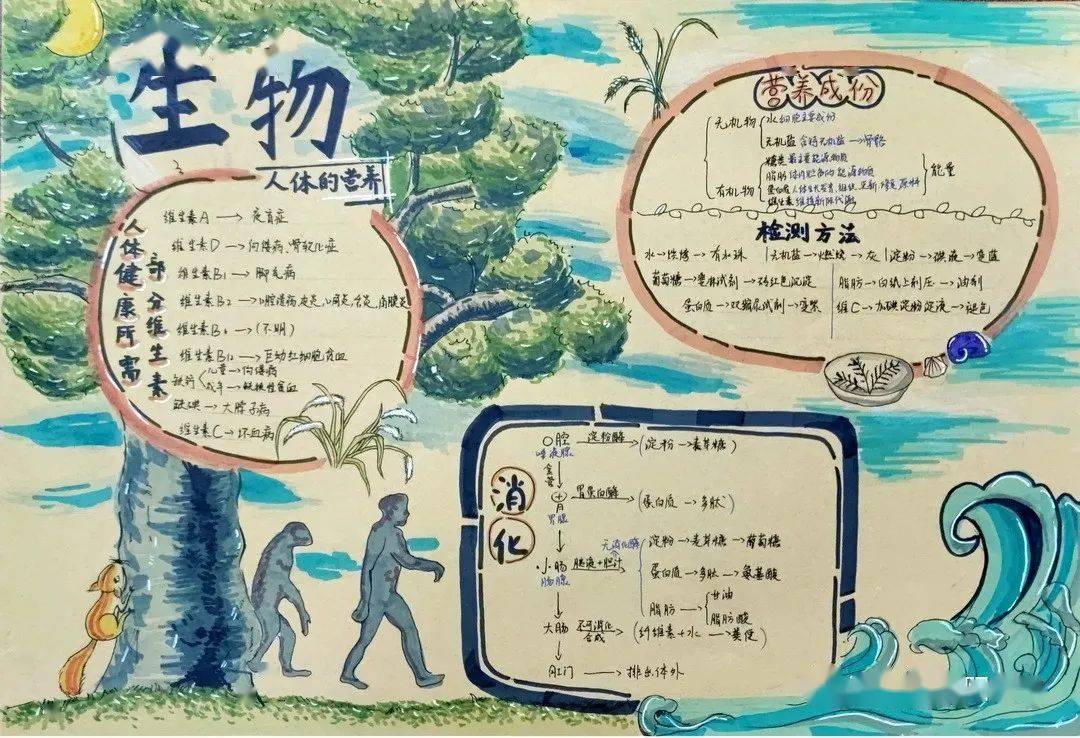 生物
人体的营养
人体健康所需
部分维生素
维生素A → 夜盲症
维生素D → 佝偻病、骨软化症
维生素B1 → 脚气病
维生素B2 → 口腔溃疡
→ (不明)
维生素B12 → 巨幼红细胞贫血
儿童 → 佝偻病
成年
缺碘 → 大脖子病
维生素C → 坏血病
营养成份
无机物
水 细胞主要成份
无机盐 含钙无机盐 → 骨骼
有机物
糖类 最主要能源物质
脂肪 体内贮备的能源物质
蛋白质 人体生长发育、组织更新、修复原料
维生素 维持新陈代谢
能量
检测方法
水 → 烘烤 → 有水珠
无机盐 → 燃烧 → 灰
淀粉 → 碘液 → 变蓝
葡萄糖 → 斐林试剂 → 砖红色沉淀
脂肪 → 白纸上刮压 → 油
蛋白质 → 双缩尿试剂 → 变紫
维C → 加碘淀粉淀液 → 褪色
消化
口腔 淀粉酶 → (淀粉 → 麦芽糖)
唾液腺
食管
胃 胃蛋白酶 → (蛋白质 → 多肽)
胃腺
无消化酶
小肠 胰液+胆汁 →
肠腺
淀粉 → 麦芽糖 → 葡萄糖
蛋白质 → 多肽 → 氨基酸
脂肪 → 甘油
脂肪酸
大肠 不可消化合成 → (纤维素+水 → 粪便)
肛门 → 排出体外